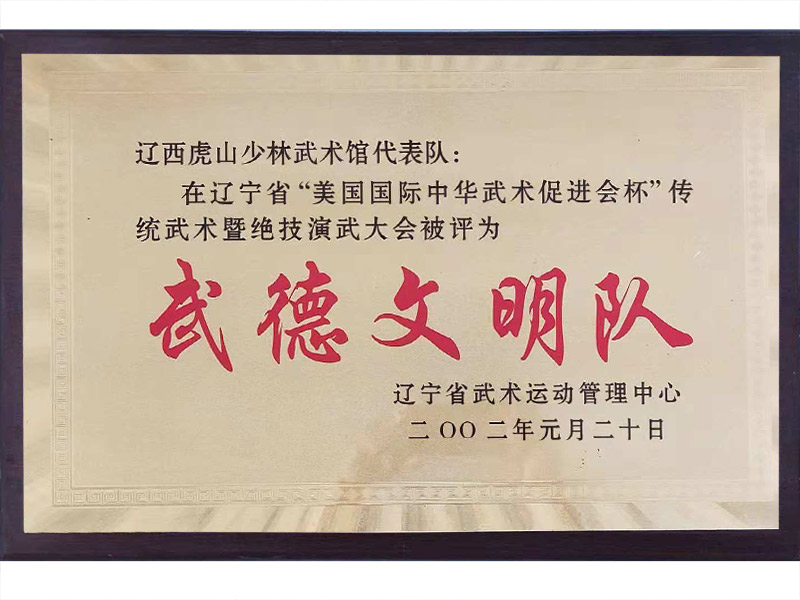 辽西虎山少林武术馆代表队：
在辽宁省“美国国际中华武术促进会杯”传
统武术暨绝技演武大会被评为
武德文明队
辽宁省武术运动管理中心
二〇〇二年元月二十日